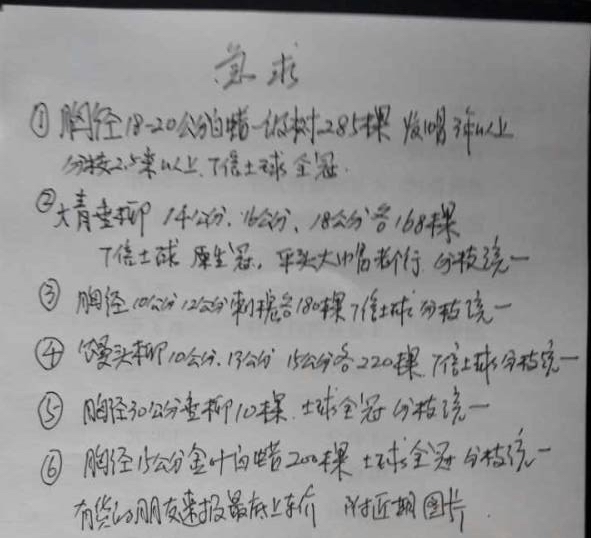 急求
① 胸径18-20公分白蜡一级树285棵 发冒3年以上
分枝2.5米以上.7倍土球 全冠.
② 大青垂柳 14公分.16公分、18公分各168棵
7倍土球 原生冠, 平头大冒都行. 分枝统一
③ 胸径10公分12公分刺槐各180棵7倍土球 分枝统一
④ 馒头柳10公分.13公分 15公分各220棵.7倍土球分枝统一
⑤ 胸径30公分垂柳10棵.土球全冠 分枝统一
⑥ 胸径15公分金叶白蜡200棵 土球全冠 分枝统一
有货的朋友速报最低上车价 附近期图片.